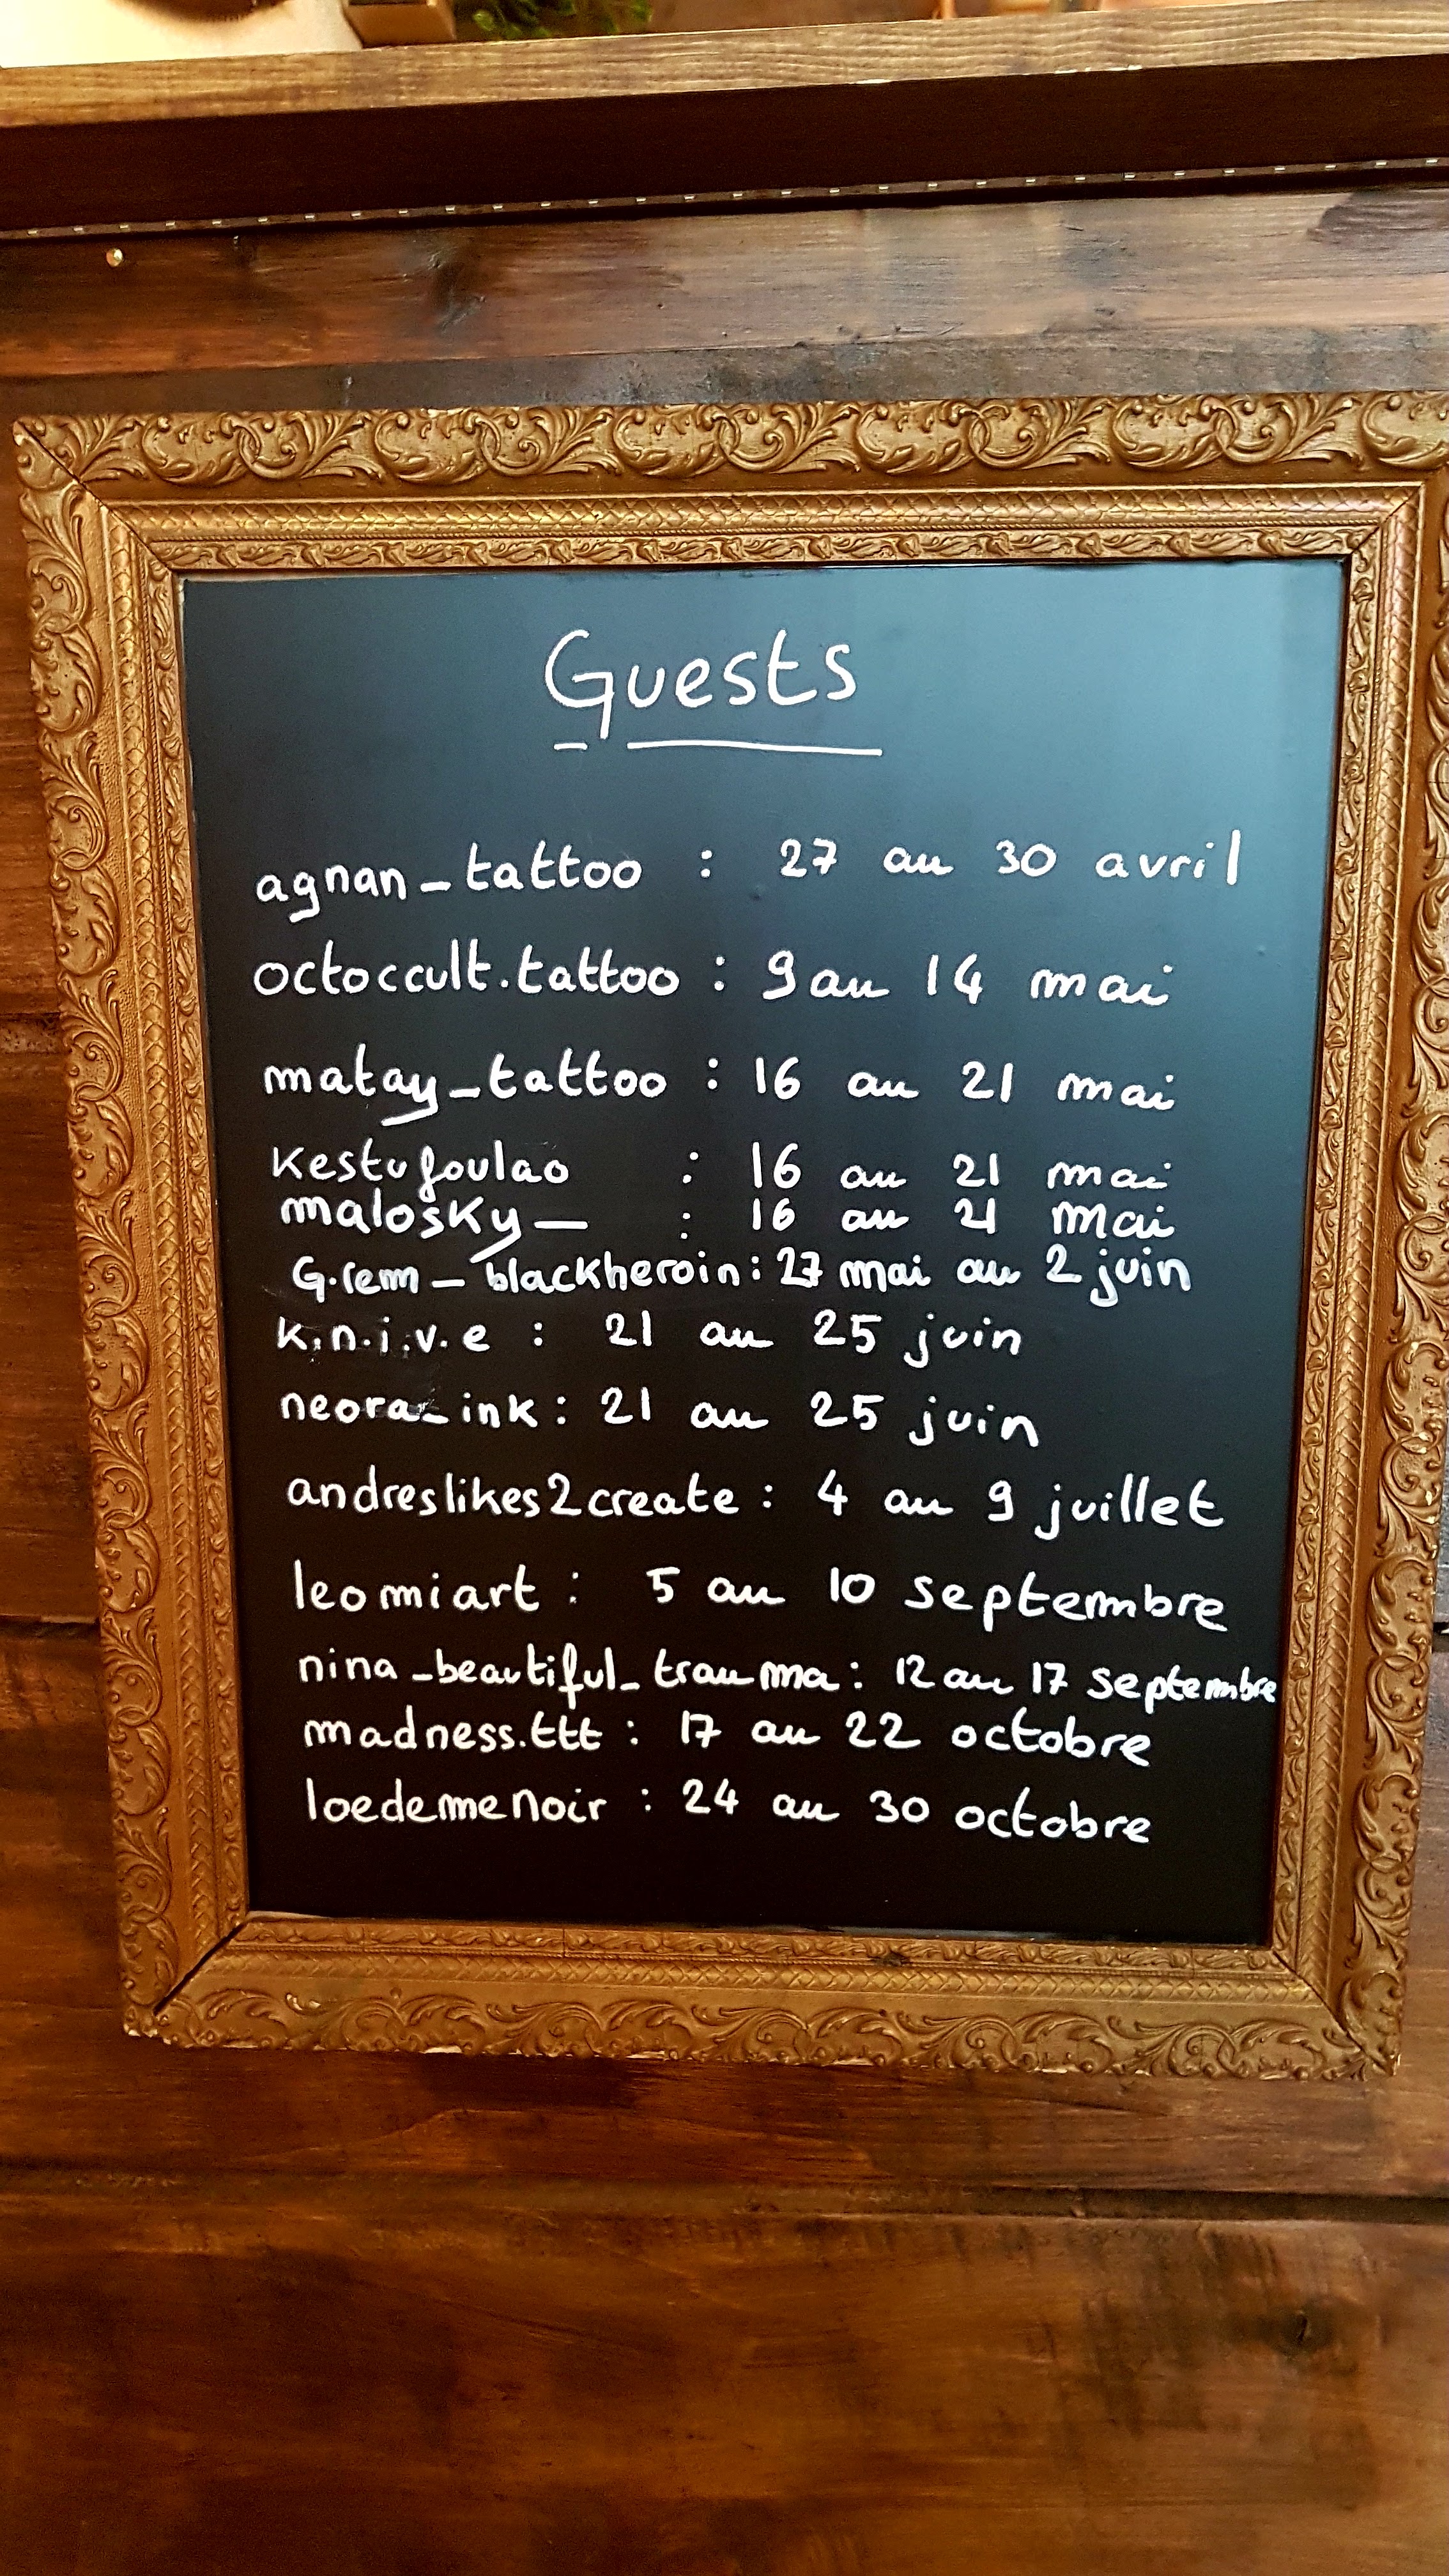 Guests
agnan_tattoo : 27 au 30 avril
octoccult.tattoo : 9 au 14 mai
matay_tattoo : 16 au 21 mai
Kestufoulao : 16 au 21 mai
malosKy_ : 16 au 21 mai
G.rem_blackheroin : 27 mai au 2 juin
k.n.i.v.e : 21 au 25 juin
neora_ink : 21 au 25 juin
andreslikes2create : 4 au 9 juillet
leomiart : 5 au 10 septembre
nina_beautiful_trauma : 12 au 17 septembre
madness.ttt : 17 au 22 octobre
loedemenoir : 24 au 30 octobre